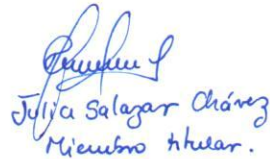 Julia Salazar Chávez
Miembro titular.